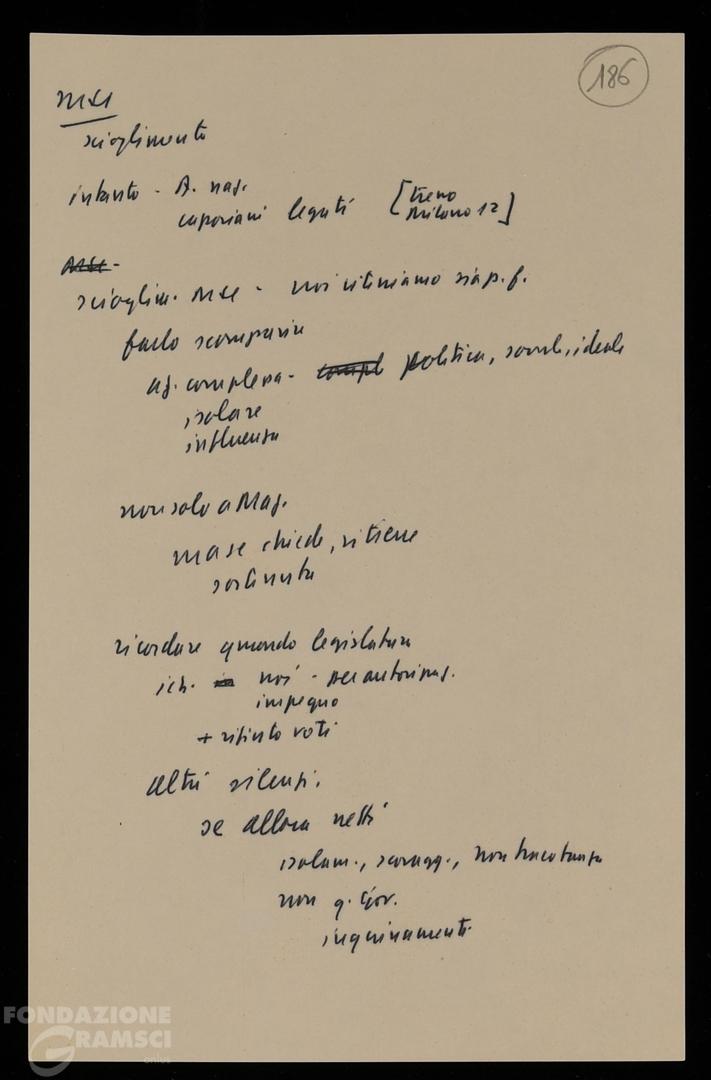 186
MSI
scioglimento
intanto - A. naz.
caporioni legati [treno
Milano 12]
MSI -
scioglim. MSI - noi riteniamo sia p. f.
farlo scomparire
az. complessa - compl politica, sociale, ideale
isolare
influenza
non solo a Mag.
ma se chiede, ritiene
sostenuta
ricordare quando legislatura
ich. in noi - per autorizzaz.
impegno
+ rifiuto voti
altri silenzi.
se allora netti
isolam., scoragg., non tracotanza
non q. Gov.
inquinamenti
FONDAZIONE
GRAMSCI
onlus